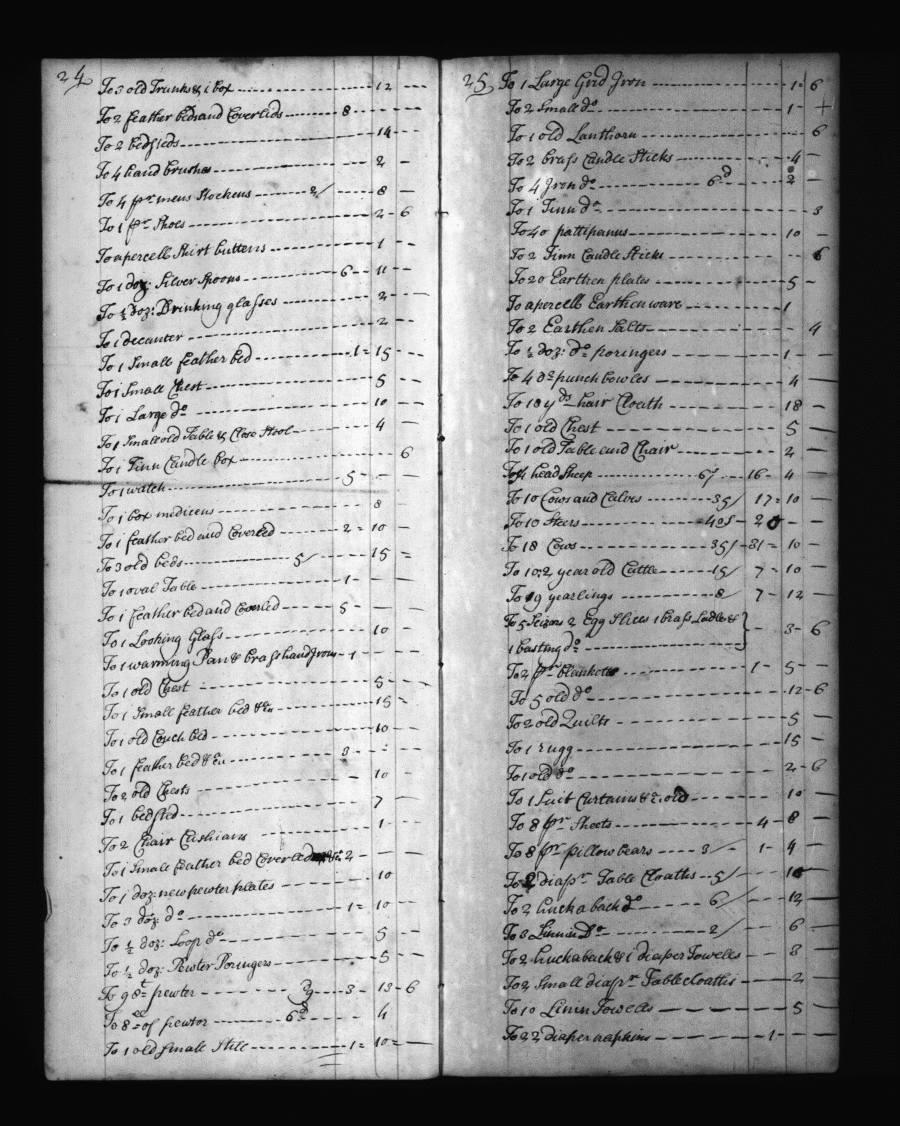 24
To 3 old Trunks & 1 box ----- 12 --
To 2 feather beds and Coverlids ----- 8 -- --
To 2 bedsteds ----- 14 --
To 4 hand brushes ----- 2 --
To 4 pr mens Stockens ----- 2/ -- 8 --
To 1 pr Shoes ----- 2 - 6
To a percell Shirt buttens ----- 1 --
To 1 doz: Silver Spoons ----- 6 - 11 --
To ½ doz: Drinking glasses ----- 2 --
To 1 decanter ----- 2 --
To 1 Small feather bed ----- 1 = 15 --
To 1 Small Chest ----- 5 --
To 1 Large do ----- 10 --
To 1 Small old Table & Close Stool ----- 4 --
To 1 Tinn Candle box ----- 6
To 1 watch ----- 5 -- --
To 1 box medicens ----- 8
To 1 feather bed and Coverled ----- 2 = 10 --
To 3 old beds ----- 5/ -- 15 =
To 1 oval Table ----- 1 -- --
To 1 feather bed and Coverled ----- 5 -- --
To 1 Looking Glass ----- 10 --
To 1 warming Pan & brass hand Irons -- 1 -- --
To 1 old Chest ----- 5 --
To 1 Small feather bed &ca ----- 15 --
To 1 old Couch bed ----- 10 --
To 1 feather bed &ca ----- 3 -- --
To 2 old Chests ----- 10 --
To 1 bedsted ----- 7
To 2 Chair Cushians ----- 1 --
To 1 Small feather bed Coverled &c: 2 -- --
To 1 doz: new pewter plates ----- 10
To 3 doz: do ----- 1 = 10 --
To ½ doz: Loop do ----- 5
To ½ doz: Pewter Poringers ----- 5 --
To 98 pewter ----- 9 -- 3 - 13 - 6
To 8 of pewter ----- 6d -- 4
To 1 old Small Still ----- 1 = 10 =
25
To 1 Large Grid Iron ----- 1 - 6
To 2 Small do ----- 1 - +
To 1 old Lanthorn ----- 6
To 2 brass Candle Sticks ----- 4 --
To 4 Iron do ----- 6d -- 2 --
To 1 Tinn do ----- 3
To 40 pattipanns ----- 10 --
To 2 Tinn Candle Sticks ----- 6
To 20 Earthen plates ----- 5 --
To a percell Earthen ware ----- 1
To 2 Earthen Salts ----- 4
To ½ doz: do poringers ----- 1 --
To 4 do punch bowles ----- 4 --
To 18 yds hair Cloath ----- 18 --
To 1 old Chest ----- 5 --
To 1 old Table and Chair ----- 2 --
head Sheep ----- 6/ -- 16 - 4
To 10 Cows and Calves ----- 35/ 17 = 10 --
To 10 Steers ----- 40s - 20 -- --
To 18 Cows ----- 35/ - 31 - 10 --
To 10: 2 year old Cattle ----- 15/ 7 = 10 --
To 19 yearlings ----- 8/ 7 - 12 --
To 5 Scizors 2 Egg Slices 1 brass Ladle &
1 basting do ----- 3 - 6
To 2 pr blankets ----- 1 - 5 --
To 5 old do ----- 12 - 6
To 2 old Quilts ----- 5 --
To 1 rugg ----- 15 --
To 1 old do ----- 2 - 6
To 1 Suit Curtains &c. old ----- 10 --
To 8 pr Sheets ----- 4 - 8 --
To 8 pr pillowbears ----- 3/ -- 1 - 4 --
To 2 diapr Table Cloaths -- 5/ -- 10 --
To 2 huckaback do ----- 6/ -- 12 --
To 3 Linnin Do ----- 2/ -- 6 --
To 2 huckaback & 1 diaper Towells -- 3 --
To 2 Small diapr Table cloaths -- 2 --
To 10 Linin Towells ----- 5 --
To 22 diaper napkins ----- 1 -- --